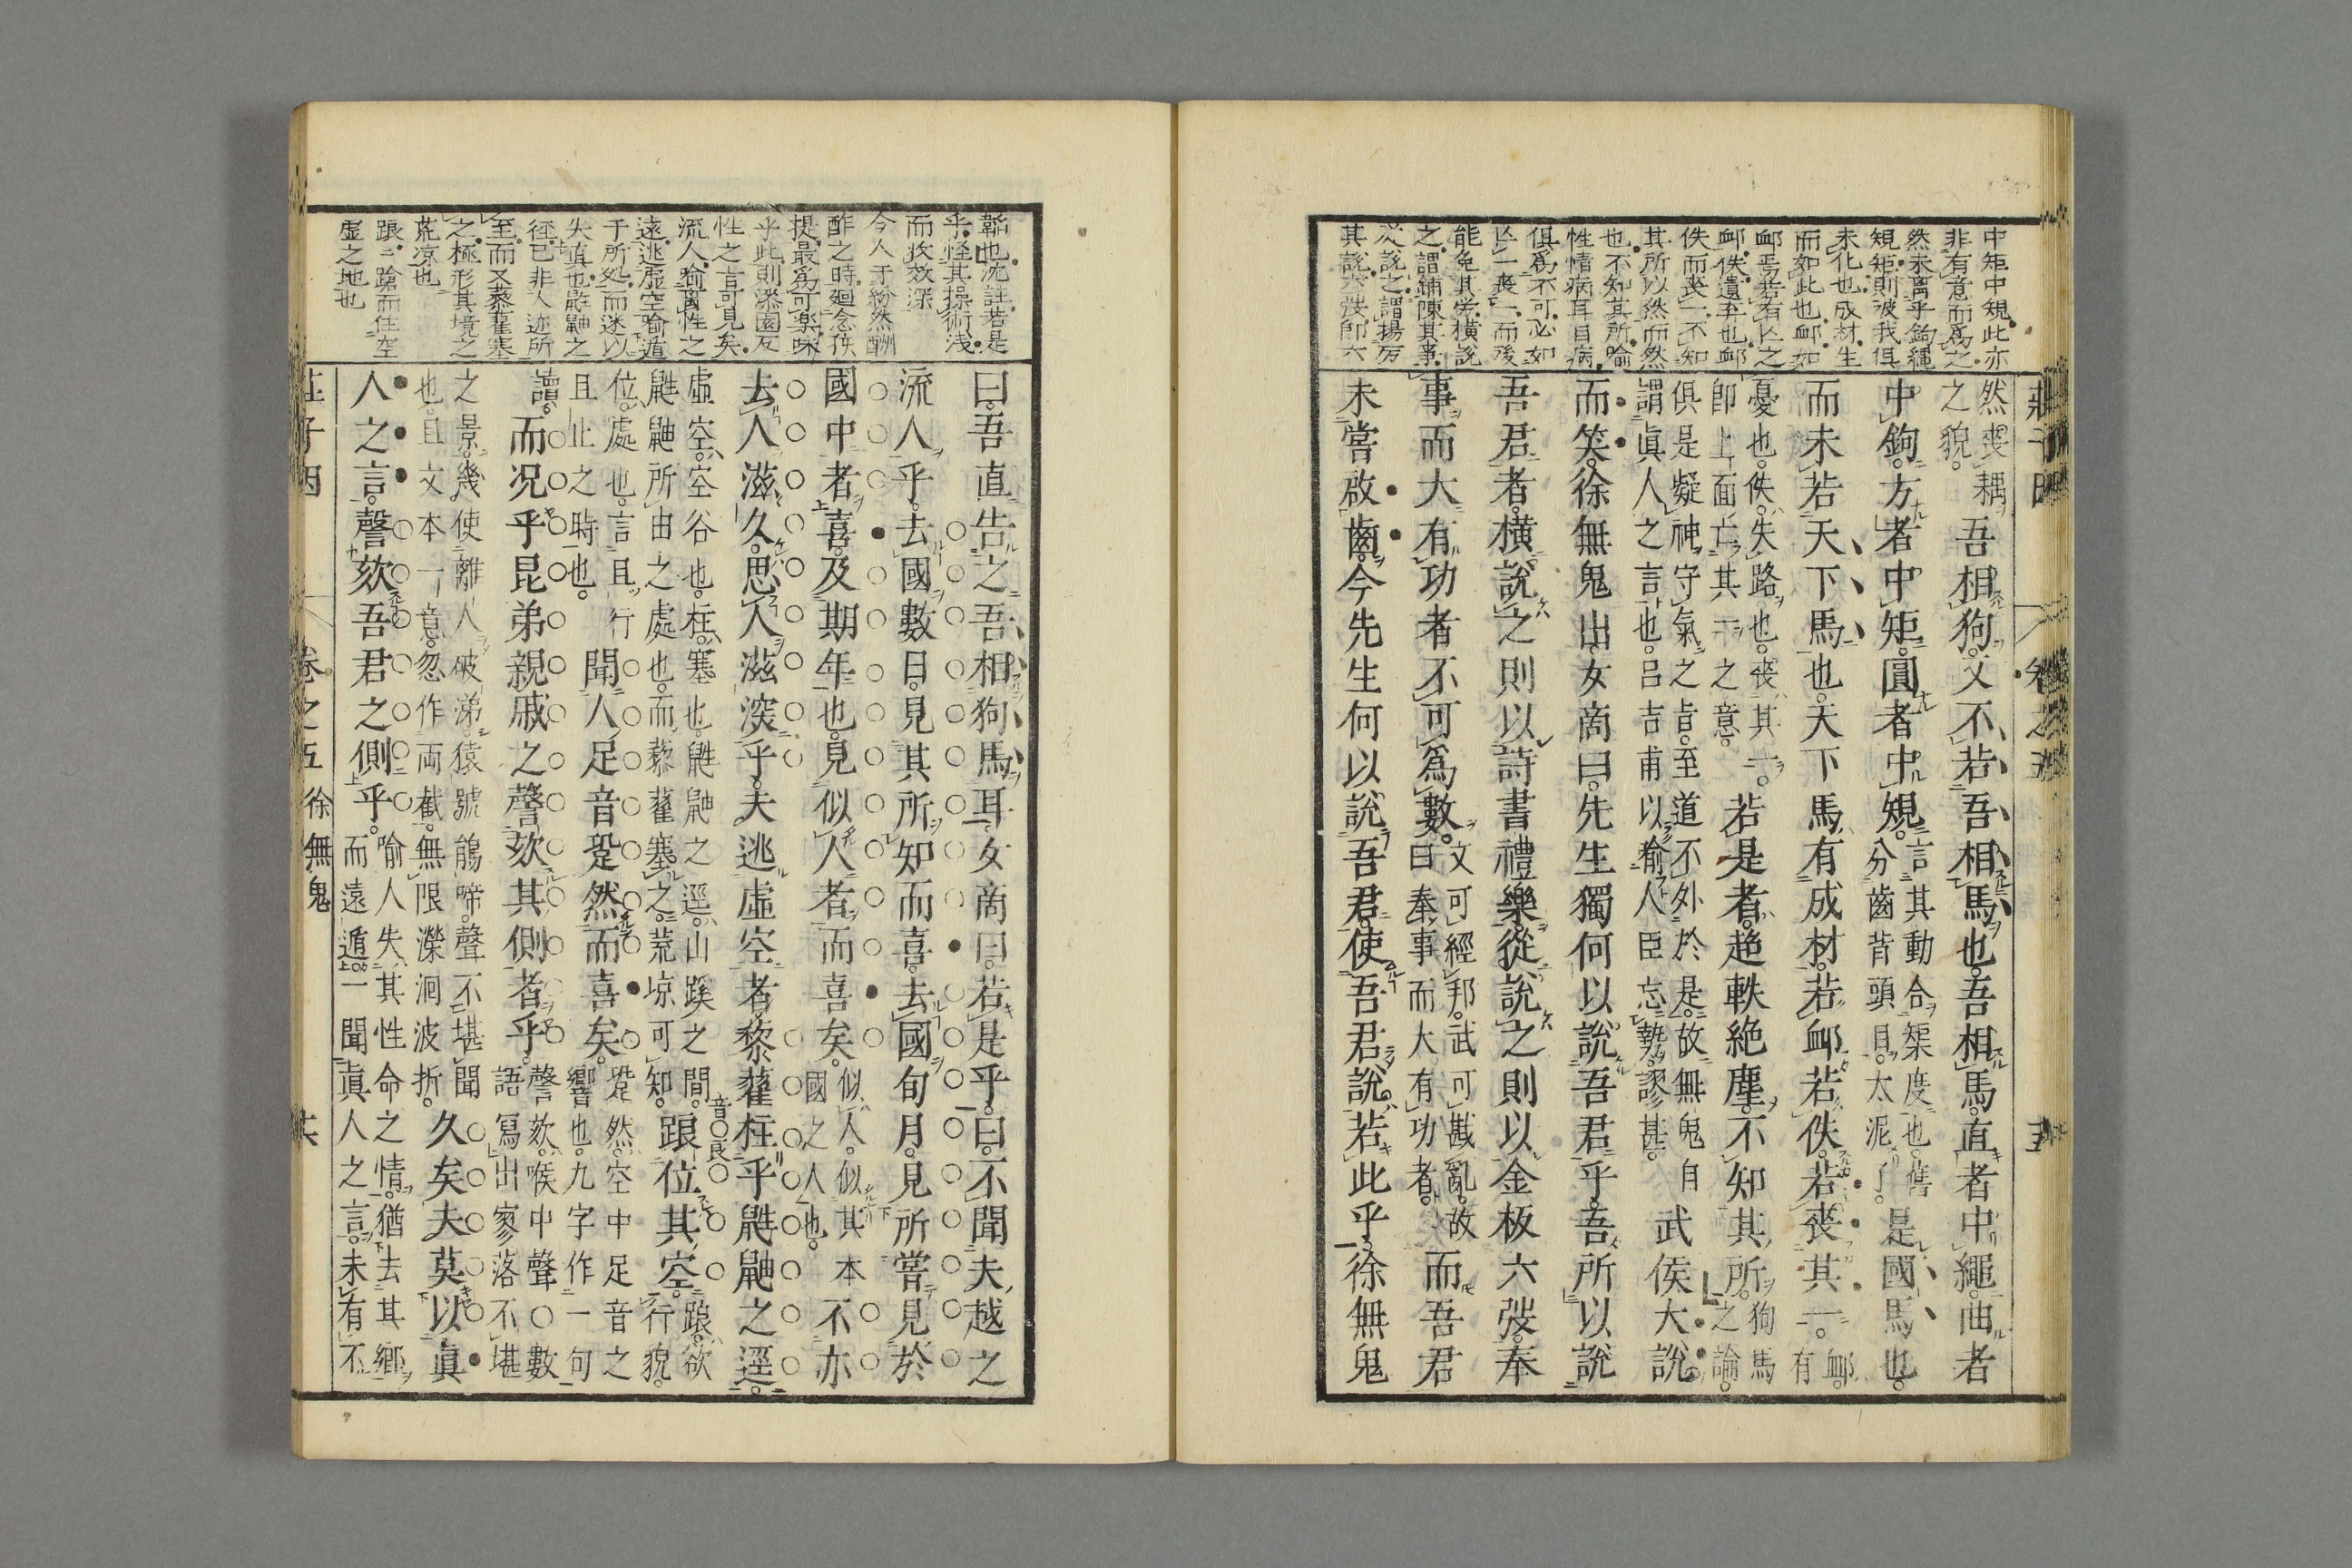 中矩中規此亦
非有意而爲之
然未离乎鉤繩
規矩則被我俱
未化也成材生
而如此也卹如
卹焉若有亾之
卹佚遺弃也卹
佚而喪一不知
其所以然而然
也不知其所喻
性情病耳目病
俱爲不可必如
亾一喪一而後
能免其勞橫說
之謂鋪陳其事
從說之謂揚厉
其說六弢即六
然喪耦
之貌
吾相狗又不若吾相馬也吾相馬直者中繩曲者
中鉤方者中矩圓者中規
言其動合榘度也舊
分齒背頭目太泥了
是國馬也
而未若天下馬也天下馬有成材若卹若佚若喪其一
卹
有
憂也佚失路也喪其一
即上面亡其一之意
若是者超軼絶塵不知其所
狗馬
之論
俱是疑神守氣之旨至道不外於是故無鬼自
謂眞人之言也呂吉甫以喻人臣忘勢謬甚
武侯大說
而笑徐無鬼出女商曰先生獨何以說吾君乎吾所以說
吾君者橫說之則以詩書禮樂從說之則以金板六弢奉
事而大有功者不可爲數
文可經邦武可戡亂故
曰奉事而大有功者
而吾君
未嘗啟齒今先生何以說吾君使吾君說若此乎徐無鬼
莊子因 卷之五
乎怪其操術浅
而收效深
今人于紛然酬
酢之時廻念孩
提最爲可楽味
乎此則漆園反
性之旨可見矣
流人喻离性之
遠逃虛空喻遁
于所処而迷以
失眞也鼪鼬之
徑已非人迹所
至而又藜藋塞
之極形其境之
荒凉也
踉踉蹌而住空
虛之地也
曰吾直告之吾相狗馬耳女商曰若是乎曰不聞夫越之
流人乎去國數日見其所知而喜去國旬月見所嘗見於
國中者喜及期年也見似人者而喜矣
似人似其本
國之人也
不亦
去人滋久思人滋深乎夫逃虛空者藜藋柱乎鼪鼬之逕
虛空空谷也柱塞也鼪鼬之逕山蹊之間
鼪鼬所由之處也而藜藋塞之荒凉可知
踉
音良
位其空
踉欲
行貌
位處也言且行
且止之時也
聞人足音跫然而喜矣
跫然空中足音之
響也九字作一句
讀
而况乎昆弟親戚之謦欬其側者乎
謦欬喉中聲○數
語寫出寥落不堪
之景幾使離人破涕猿號鵑啼聲不堪聞
也且文本一意忽作両截無限瀠洄波折
久矣夫莫以眞
人之言謦欬吾君之側乎
喻人失其性命之情猶去其鄉
而遠遁一聞眞人之言未有不
莊子因 卷之五 徐無鬼